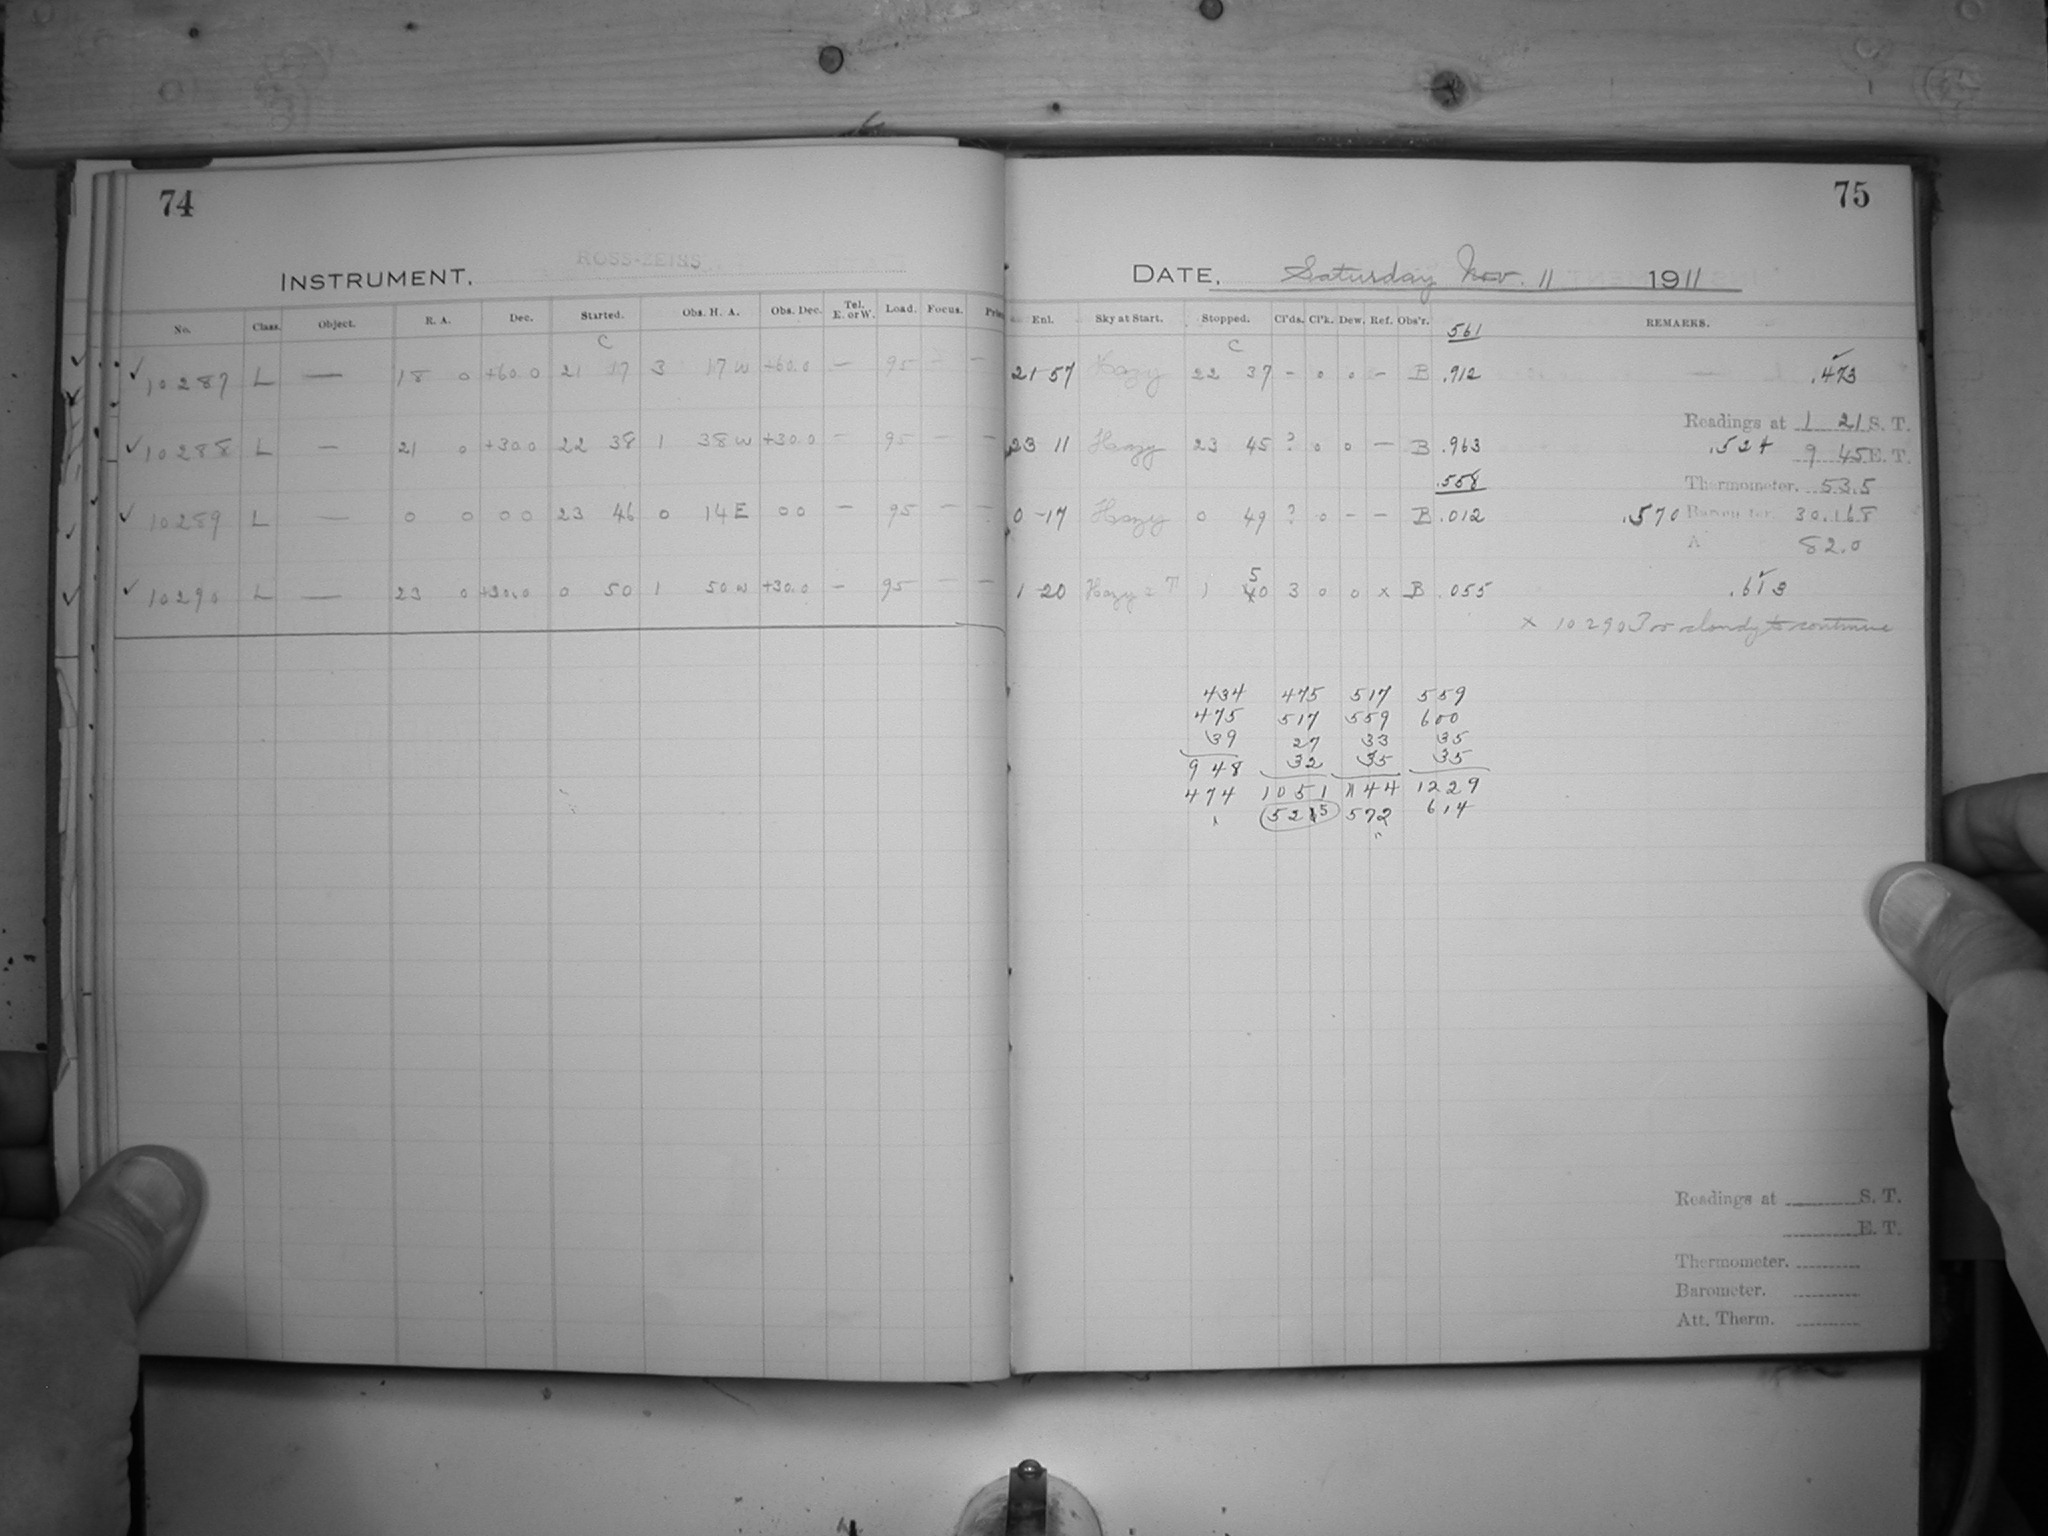 74
INSTRUMENT. ROSS-ZEISS
No. Class. Object. R. A. Dec. Started. Obs. H. A. Obs. Dec. Tel. E. or W. Load. Focus.
C
10287 L — 18 0 +60.0 21 17 3 17 W +60.0 — 95 — —
10288 L — 21 0 +30.0 22 38 1 38 W +30.0 — 95 — —
10289 L — 0 0 0 0 23 46 0 14 E 0 0 — 95 — —
10290 L — 23 0 +30.0 0 50 1 50 W +30.0 — 95 — —
75
DATE. Saturday Nov. 11 1911
Enl. Sky at Start. Stopped. Cl'ds. Cl'k. Dew. Ref. Obs'r. REMARKS.
561
C
21 57 Hazy 22 37 - 0 0 - B .912 — .473
Readings at 1 21 S. T.
23 11 Hazy 23 45 ? 0 0 — B .963 .524 9 45 E. T.
.558 Thermometer. 53.5
0 -17 Hazy 0 49 ? 0 - - B .012 .570 30.168
82.0
5
1 20 1 40 3 0 0 x B .055 .613
x 10290 Too cloudy to continue
434 475 517 559
475 517 559 600
39 27 33 35
948 32 35 35
474 1051 1144 1229
5215 572 614
Readings at S. T.
E. T.
Thermometer.
Barometer.
Att. Therm.